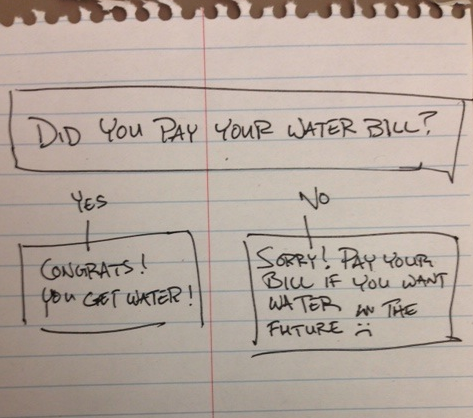 DID YOU PAY YOUR WATER BILL?
YES
NO
CONGRATS!
YOU GET WATER!
SORRY! PAY YOUR
BILL IF YOU WANT
WATER IN THE
FUTURE :(